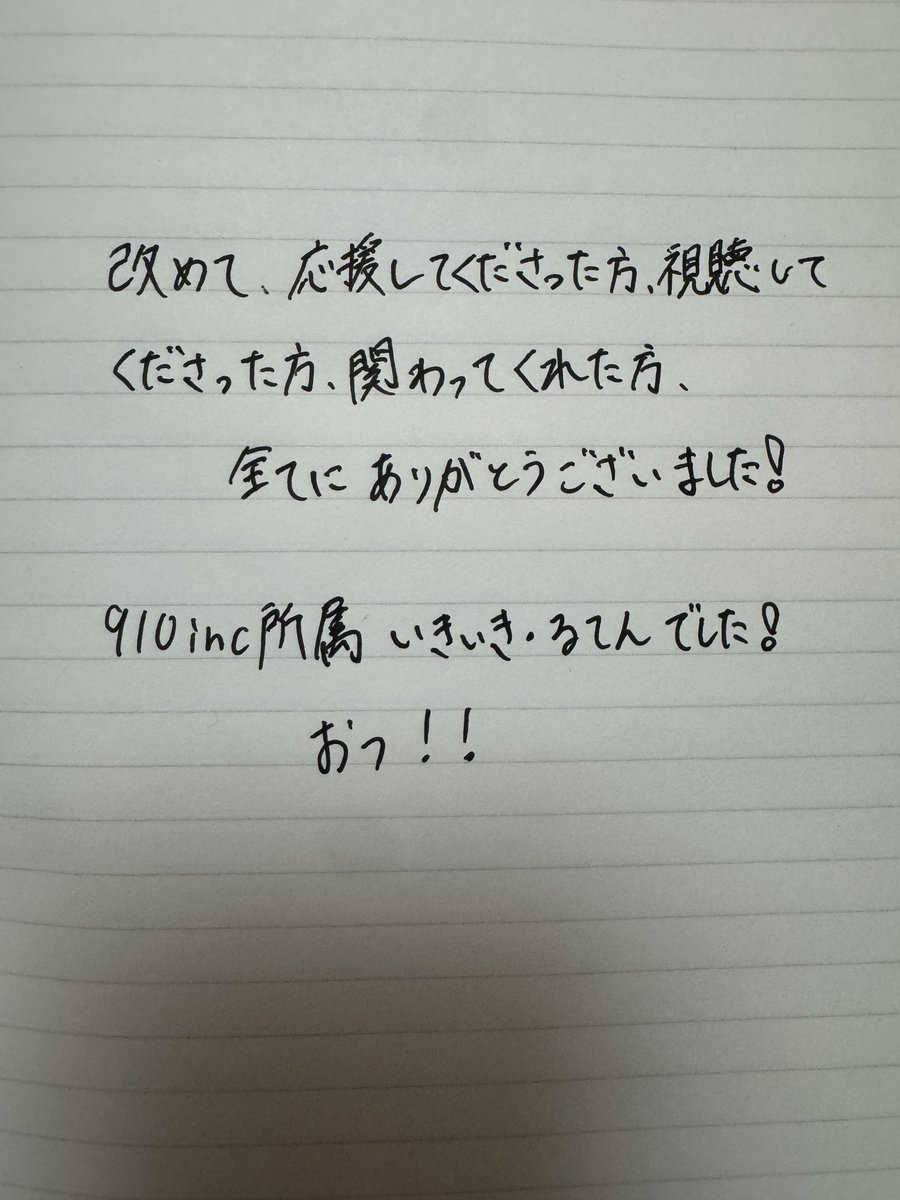 改めて、応援してくださった方、視聴して
くださった方、関わってくれた方、
全てに ありがとうございました!
910inc所属 いきいき・るてんでした!
おっ!!